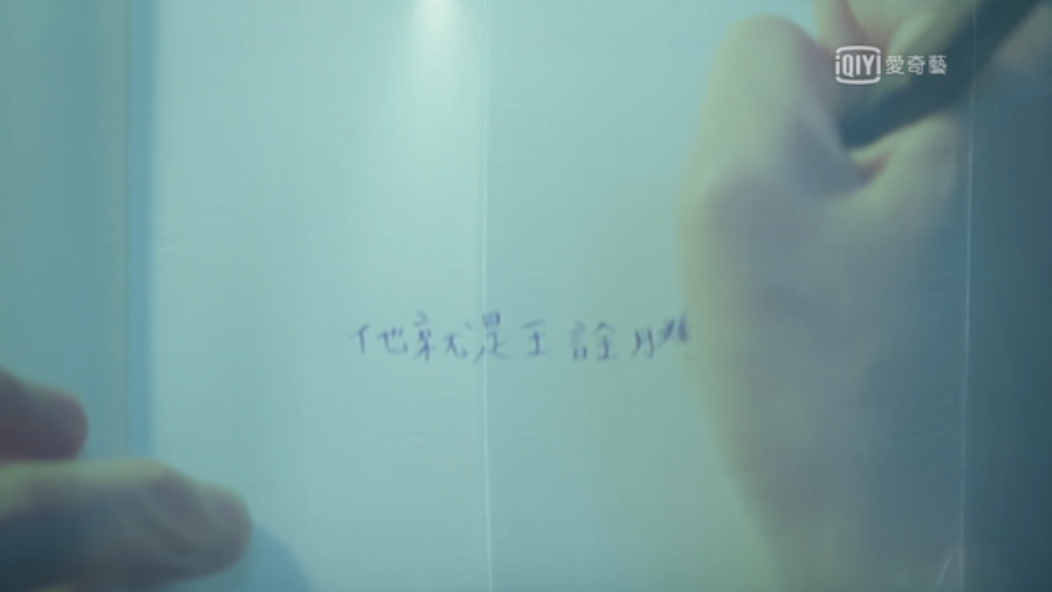 iQIY 愛奇藝
他就是王詮勝